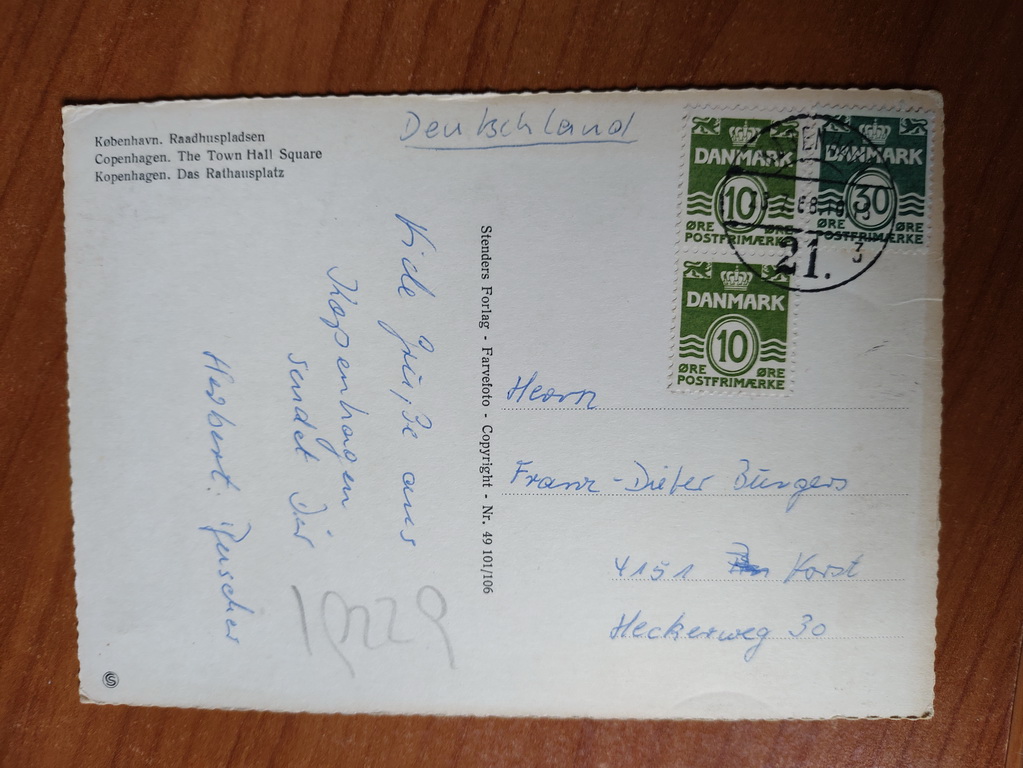 København. Raadhuspladsen
Copenhagen. The Town Hall Square
Kopenhagen. Das Rathausplatz
Deutschland
Viele Grüße aus
Kopenhagen
sendet Dir
Herbert
Stenders Forlag - Farvefoto - Copyright - Nr. 49 101/106
DANMARK
10
ØRE ØRE
POSTFRIMÆRKE
DANMARK
30
ØRE ØRE
POSTFRIMÆRKE
DANMARK
10
ØRE ØRE
POSTFRIMÆRKE
21.
3
Herrn
Franz-Dieter Büngers
4151 Vorst
Heckerweg 30